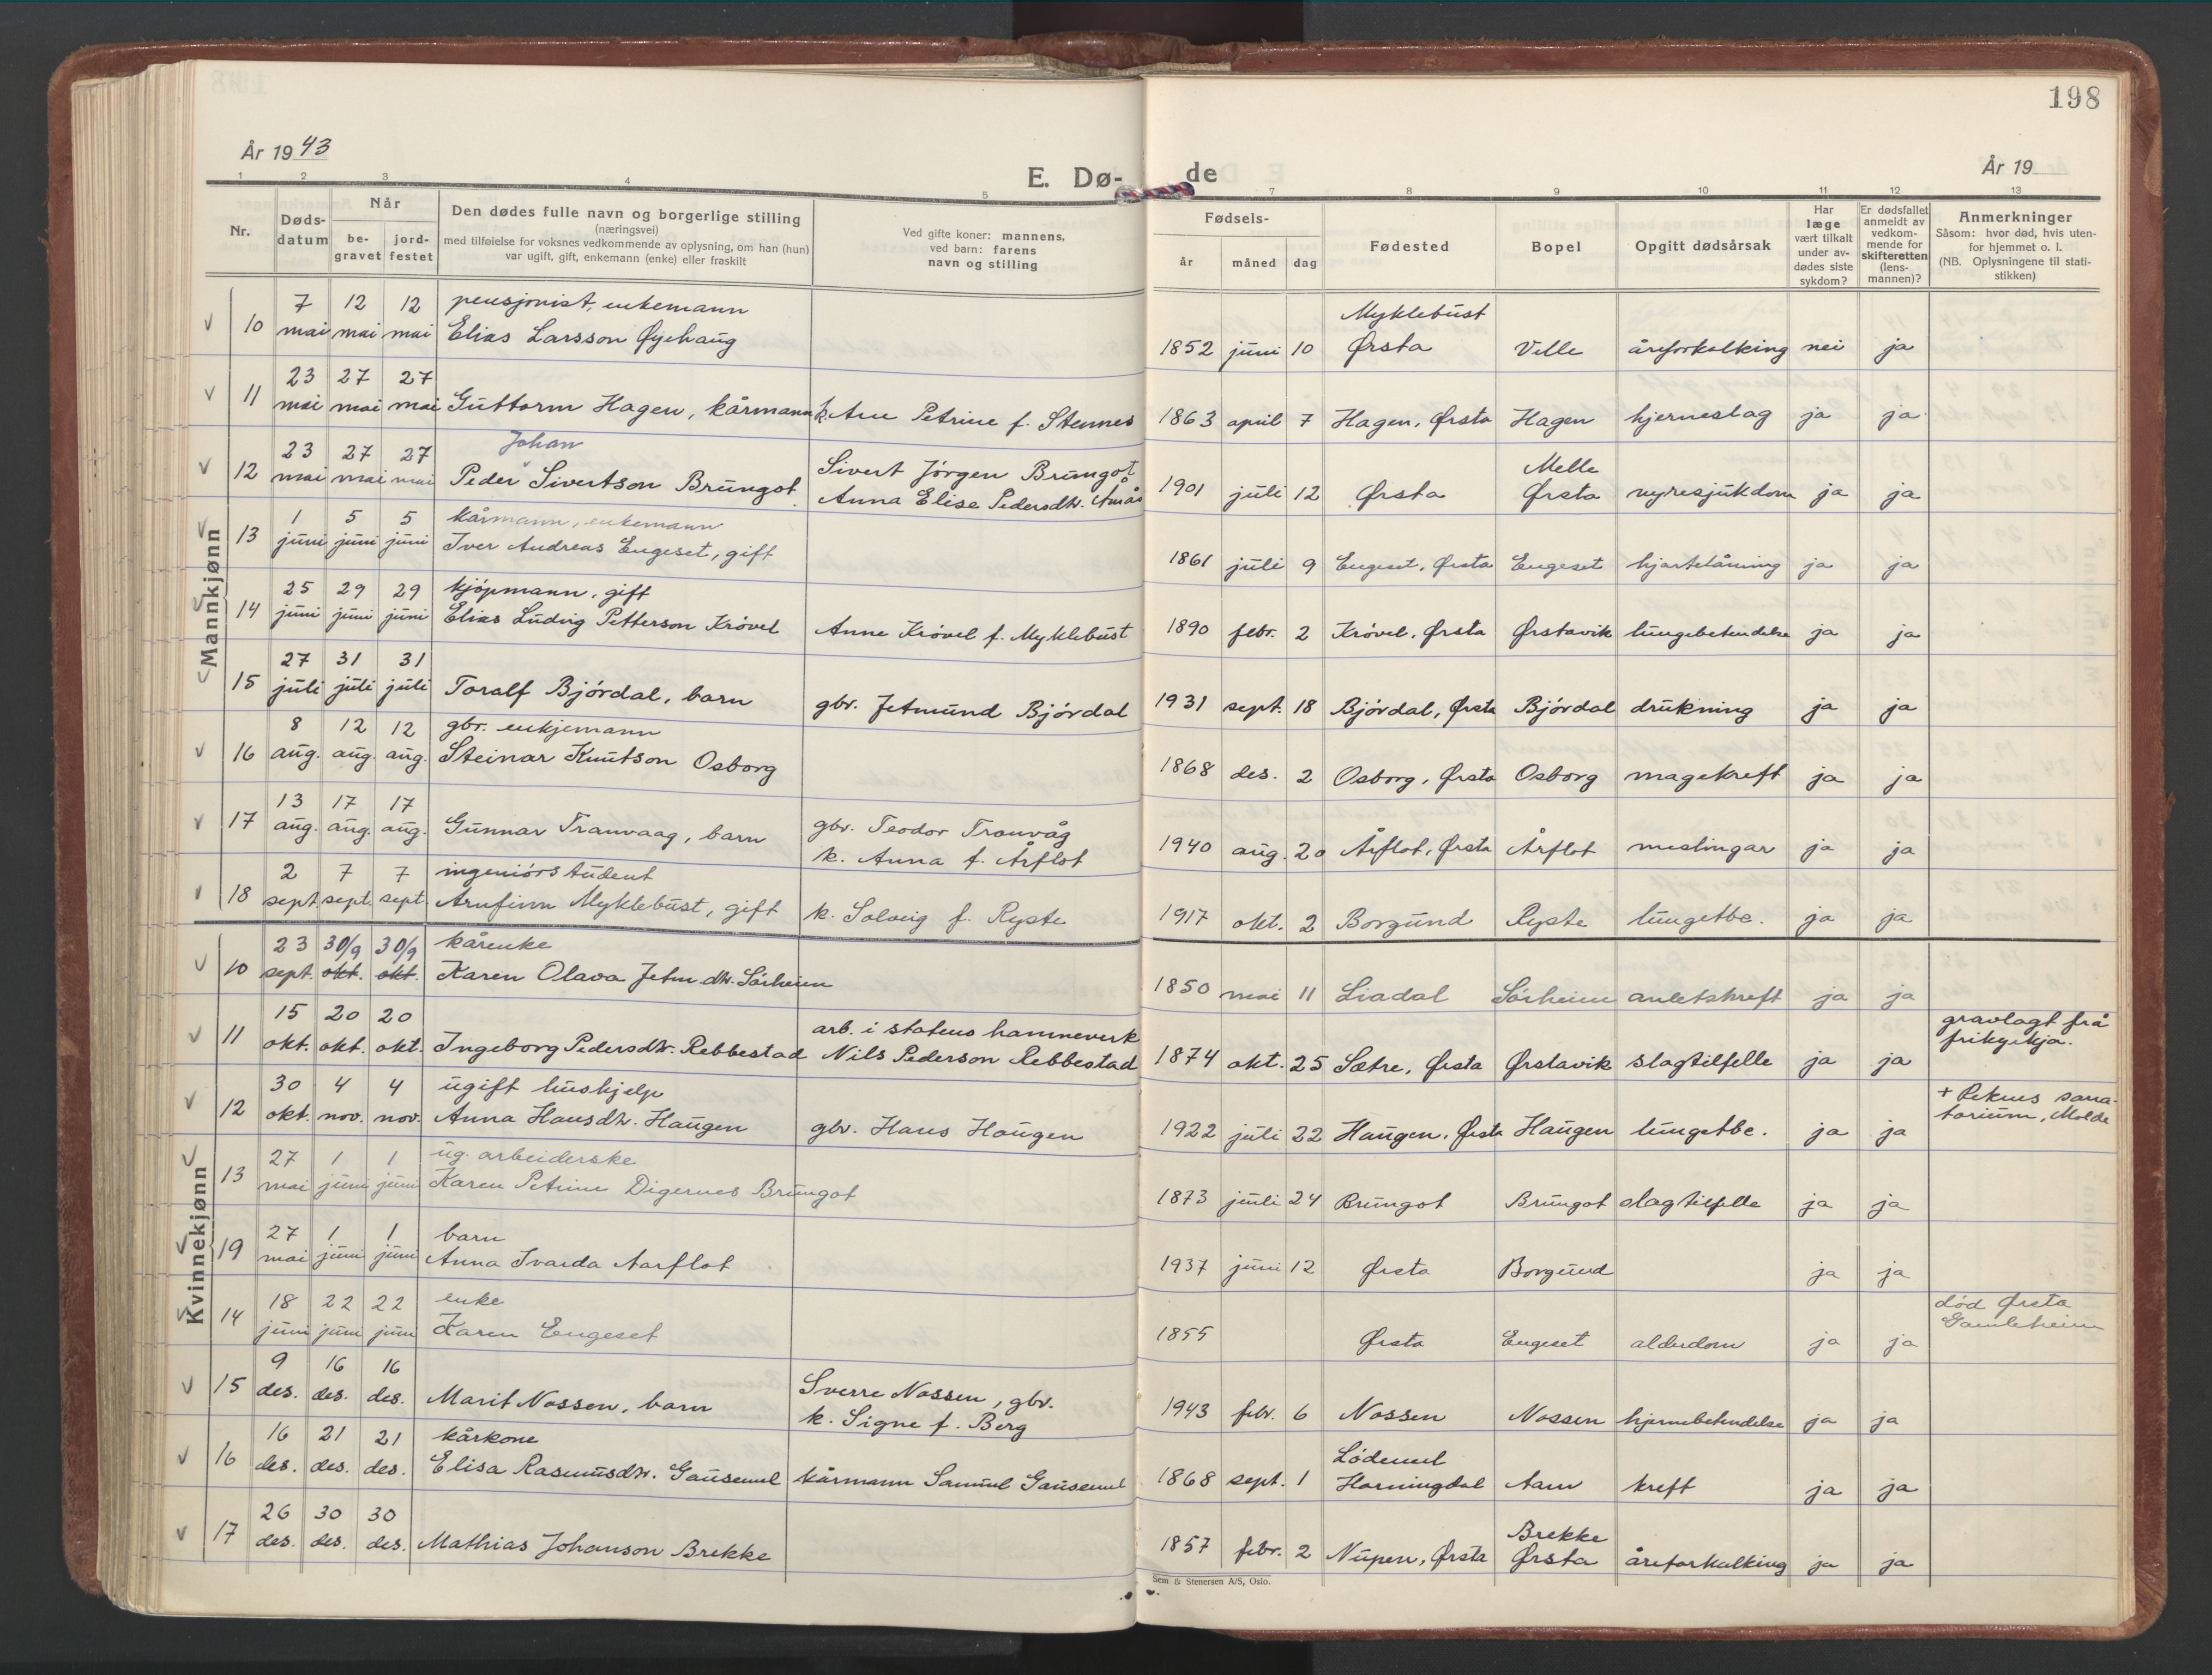 198
År 1943
E. Dø- de
År 19
1 2 3 4 5 7 8 9 10 11 12 13
Nr.
Døds-
datum
Når
be-
gravet
jord-
festet
Den dødes fulle navn og borgerlige stilling
(næringsvei)
med tilføielse for voksnes vedkommende av oplysning, om han (hun)
var ugift, gift, enkemann (enke) eller fraskilt
Ved gifte koner: mannens,
ved barn: farens
navn og stilling
Fødsels-
år måned dag
Fødested
Bopel
Opgitt dødsårsak
Har
læge
vært tilkalt
under av-
dødes siste
sykdom?
Er dødsfallet
anmeldt av
vedkom-
mende for
skifteretten
(lens-
mannen)?
Anmerkninger
Såsom: hvor død, hvis uten-
for hjemmet o. l.
(NB. Oplysningene til stati-
stikken)
Mannkjønn
7 12 12 pensjonist, enkemann Myklebust
10 mai mai mai Elias Larsson Øyehaug 1852 juni 10 Ørsta Velle åreforkalking nei ja
23 27 27
11 mai mai mai Guttorm Hagen, kårmann k. Ane Petrine f. Stennes 1863 april 7 Hagen, Ørsta Hagen hjerneslag ja ja
23 27 27 Johan Sivert Jørgen Brungot Melle
12 mai mai mai Peder Sivertson Brungot Anna Elise Pedersdtr. Åmås 1901 juli 12 Ørsta Ørsta nyresjukdom ja ja
1 5 5 kårmann, enkemann
13 juni juni juni Iver Andreas Engeset, gift 1861 juli 9 Engeset, Ørsta Engeset hjartelåming ja ja
25 29 29 kjøpmann, gift
14 juni juni juni Elias Ludvig Petterson Krøvel Anne Krøvel f. Myklebust 1890 febr. 2 Krøvel, Ørsta Ørstavik lungebetendelse ja ja
27 31 31
15 juli juli juli Toralf Bjørdal, barn gbr. Jetmund Bjørdal 1931 sept. 18 Bjørdal, Ørsta Bjørdal drukning ja ja
8 12 12 gbr. enkjemann
16 aug. aug. aug. Steinar Knutson Osborg 1868 des. 2 Osborg, Ørsta Osborg magekreft ja ja
13 17 17 gbr. Teodor Tranvåg
17 aug. aug. aug. Gunnar Tranvaag, barn k. Anna f. Årflot 1940 aug. 20 Årflot, Ørsta Årflot meslingar ja ja
2 7 7 ingeniørstudent
18 sept. sept. sept. Arnfinn Myklebust, gift k. Solveig f. Ryste 1917 okt. 2 Borgund Ryste lungetbc. ja ja
Kvinnekjønn
23 30/9 30/9 kårenke
10 sept. okt. okt. Karen Olava Jetm.dtr. Sørheim 1850 mai 11 Liadal Sørheim anletskreft ja ja
15 20 20 arb. i statens hamneverk gravlagt frå
11 okt. okt. okt. Ingeborg Pedersdtr. Rebbestad Nils Pederson Rebbestad 1874 okt. 25 Sætre, Ørsta Ørstavik slagtilfelle ja ja frikyrkja.
30 4 4 ugift hushjelp + Reknes sana-
12 okt. nov. nov. Anna Hansdtr. Haugen gbr. Hans Haugen 1922 juli 22 Haugen, Ørsta Haugen lungetbc. ja ja torium, Molde
27 1 1 ug. arbeiderske
13 mai juni juni Karen Petrine Digernes Brungot 1873 juli 24 Brungot Brungot slagtilfelle ja ja
27 1 1 barn
19 mai juni juni Anna Ivarda Aarflot 1937 juni 12 Ørsta Borgund ja ja
18 22 22 enke død Ørsta
14 juni juni juni Karen Engeset 1855 Ørsta Engeset alderdom ja ja Gamleheim
9 16 16 Sverre Nossen, gbr.
15 des. des. des. Marit Nossen, barn k. Signe f. Berg 1943 febr. 6 Nossen Nossen hjernebetendelse ja ja
16 21 21 kårkone Lødemel
16 des. des. des. Elisa Rasmusdtr. Gausemel kårmann Samuel Gausemel 1868 sept. 1 Horningdal Aam kreft ja ja
26 30 30 Brekke
17 des. des. des. Mathias Johanson Brekke 1857 febr. 2 Nupen, Ørsta Ørsta åreforkalking ja ja
Sem & Stenersen A/S, Oslo.